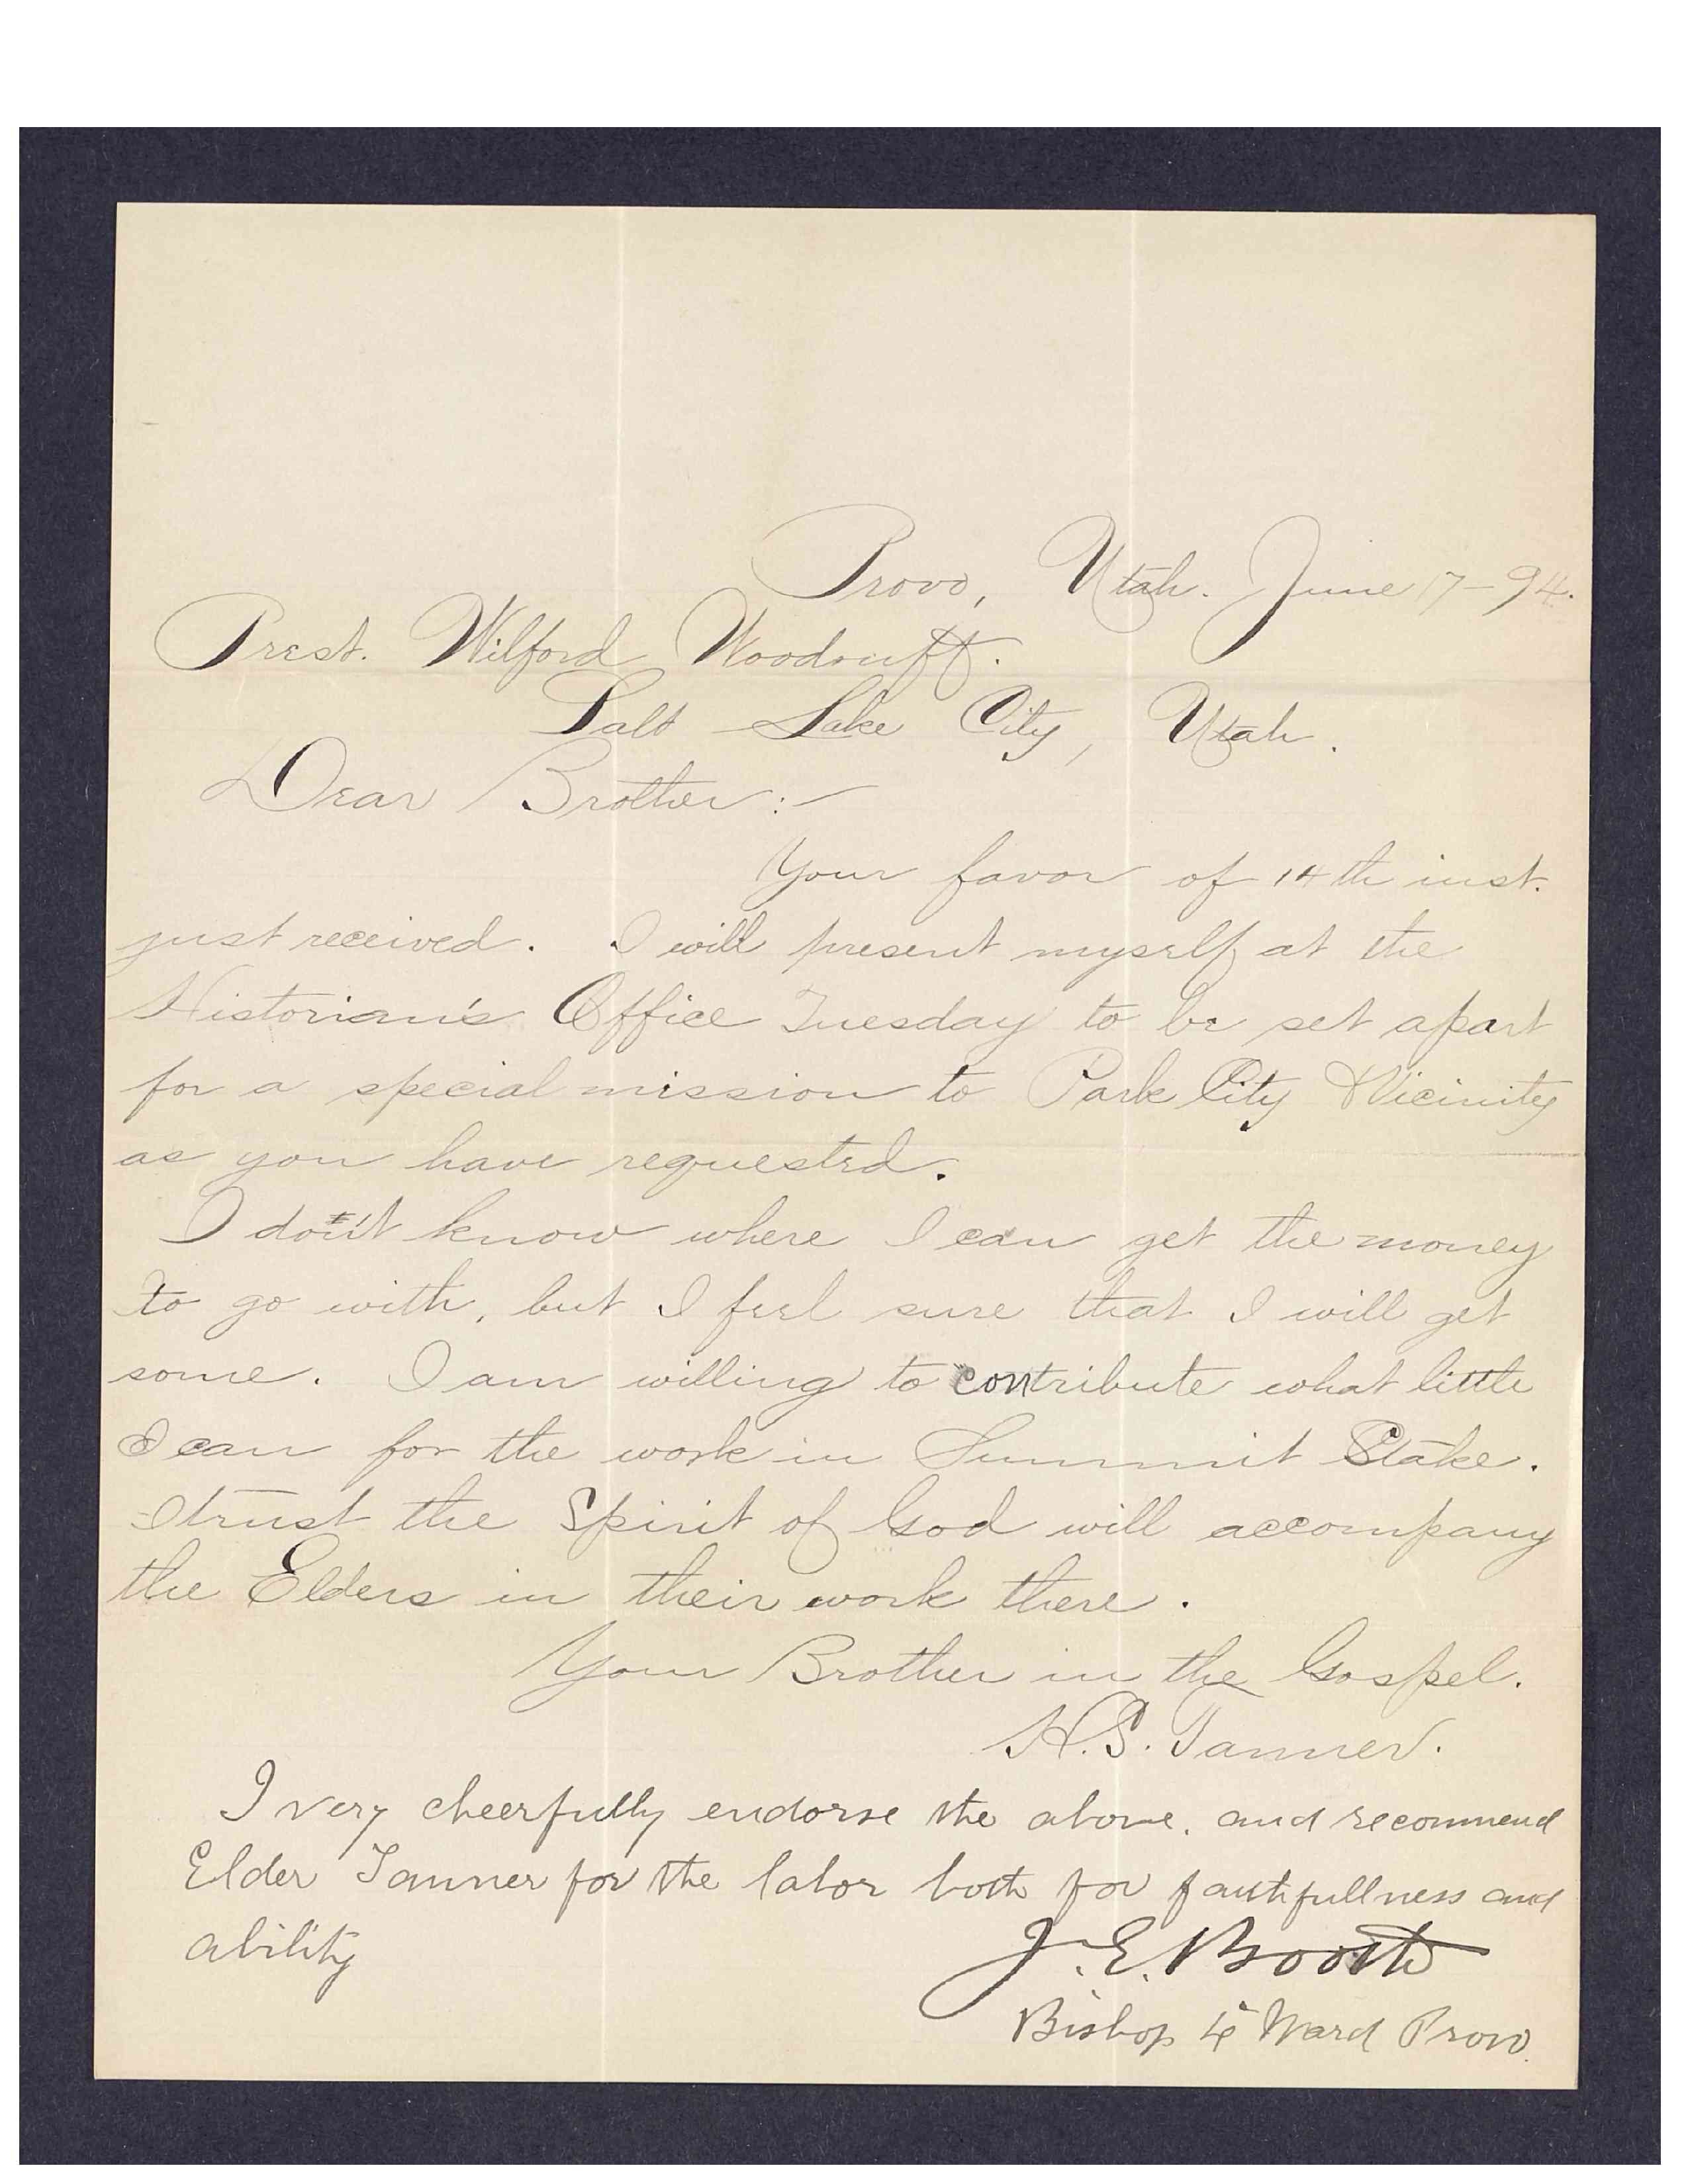 Provo, Utah. June 17-94.
Prest. Wilford Woodruff.
Salt Lake City, Utah.
Dear Brother:-
Your favor of 14th inst.
just received. I will present myself at the
Historian's Office Tuesday to be set apart
for a special mission to Park City & Vicinity
as you have requested.
I don't know where I can get the money
to go with, but I feel sure that I will get
some. I am willing to contribute what little
I can for the work in Summit Stake.
I trust the Spirit of God will accompany
the Elders in their work there.
Your Brother in the Gospel.
H.S. Tanner.
I very cheerfully endorse the above, and recommend
Elder Tanner for the labor both for faithfullness and
ability
J.E. Booth
Bishop 4th Ward Provo.